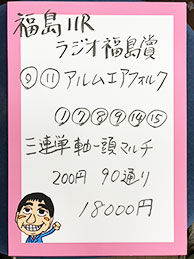 福島11R
ラジオ福島賞
⑨⑪アルムエアフォルク
①⑦⑧⑨⑭⑮
三連単軸一頭マルチ
200円 90通り
18000円